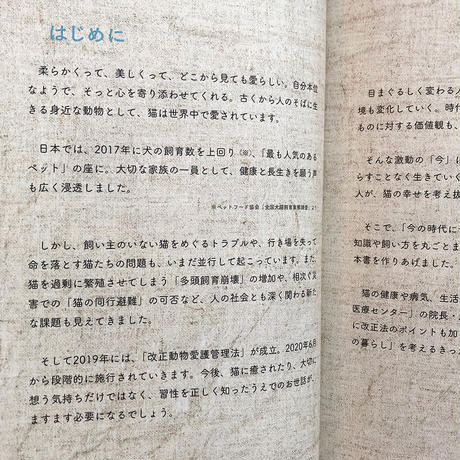 はじめに
柔らかくって、美しくって、どこから見ても愛らしい。自分本位
なようで、そっと心を寄り添わせてくれる。古くから人のそばに生
きる身近な動物として、猫は世界中で愛されています。
日本では、2017年に犬の飼育数を上回り（※）、「最も人気のある
ペット」の座に。大切な家族の一員として、健康と長生きを願う声
も広く浸透しました。
※ペットフード協会「全国犬猫飼育実態調査」より
しかし、飼い主のいない猫をめぐるトラブルや、行き場を失って
命を落とす猫たちの問題も、いまだ並行して起こっています。また
猫を過剰に繁殖させてしまう「多頭飼育崩壊」の増加や、相次ぐ災
害での「猫の同行避難」の可否など、人の社会とも深く関わる新た
な課題も見えてきました。
そして2019年には、「改正動物愛護管理法」が成立。2020年6月
から段階的に施行されていきます。今後、猫に癒されたり、大切に
想う気持ちだけではなく、習性を正しく知ったうえでのお世話が、
ますます必要になるでしょう。
目まぐるしく変わる人
境も変化していく。時代
ものに対する価値観も、
そんな激動の「今」に
らすことなく生きていく
人が、猫の幸せを考え抜
そこで、「今の時代に
知識や飼い方を丸ごとま
本書を作りあげました。
猫の健康や病気、生活
医療センター」の院長・
に改正法のポイントも加
の暮らし」を考えるきっ